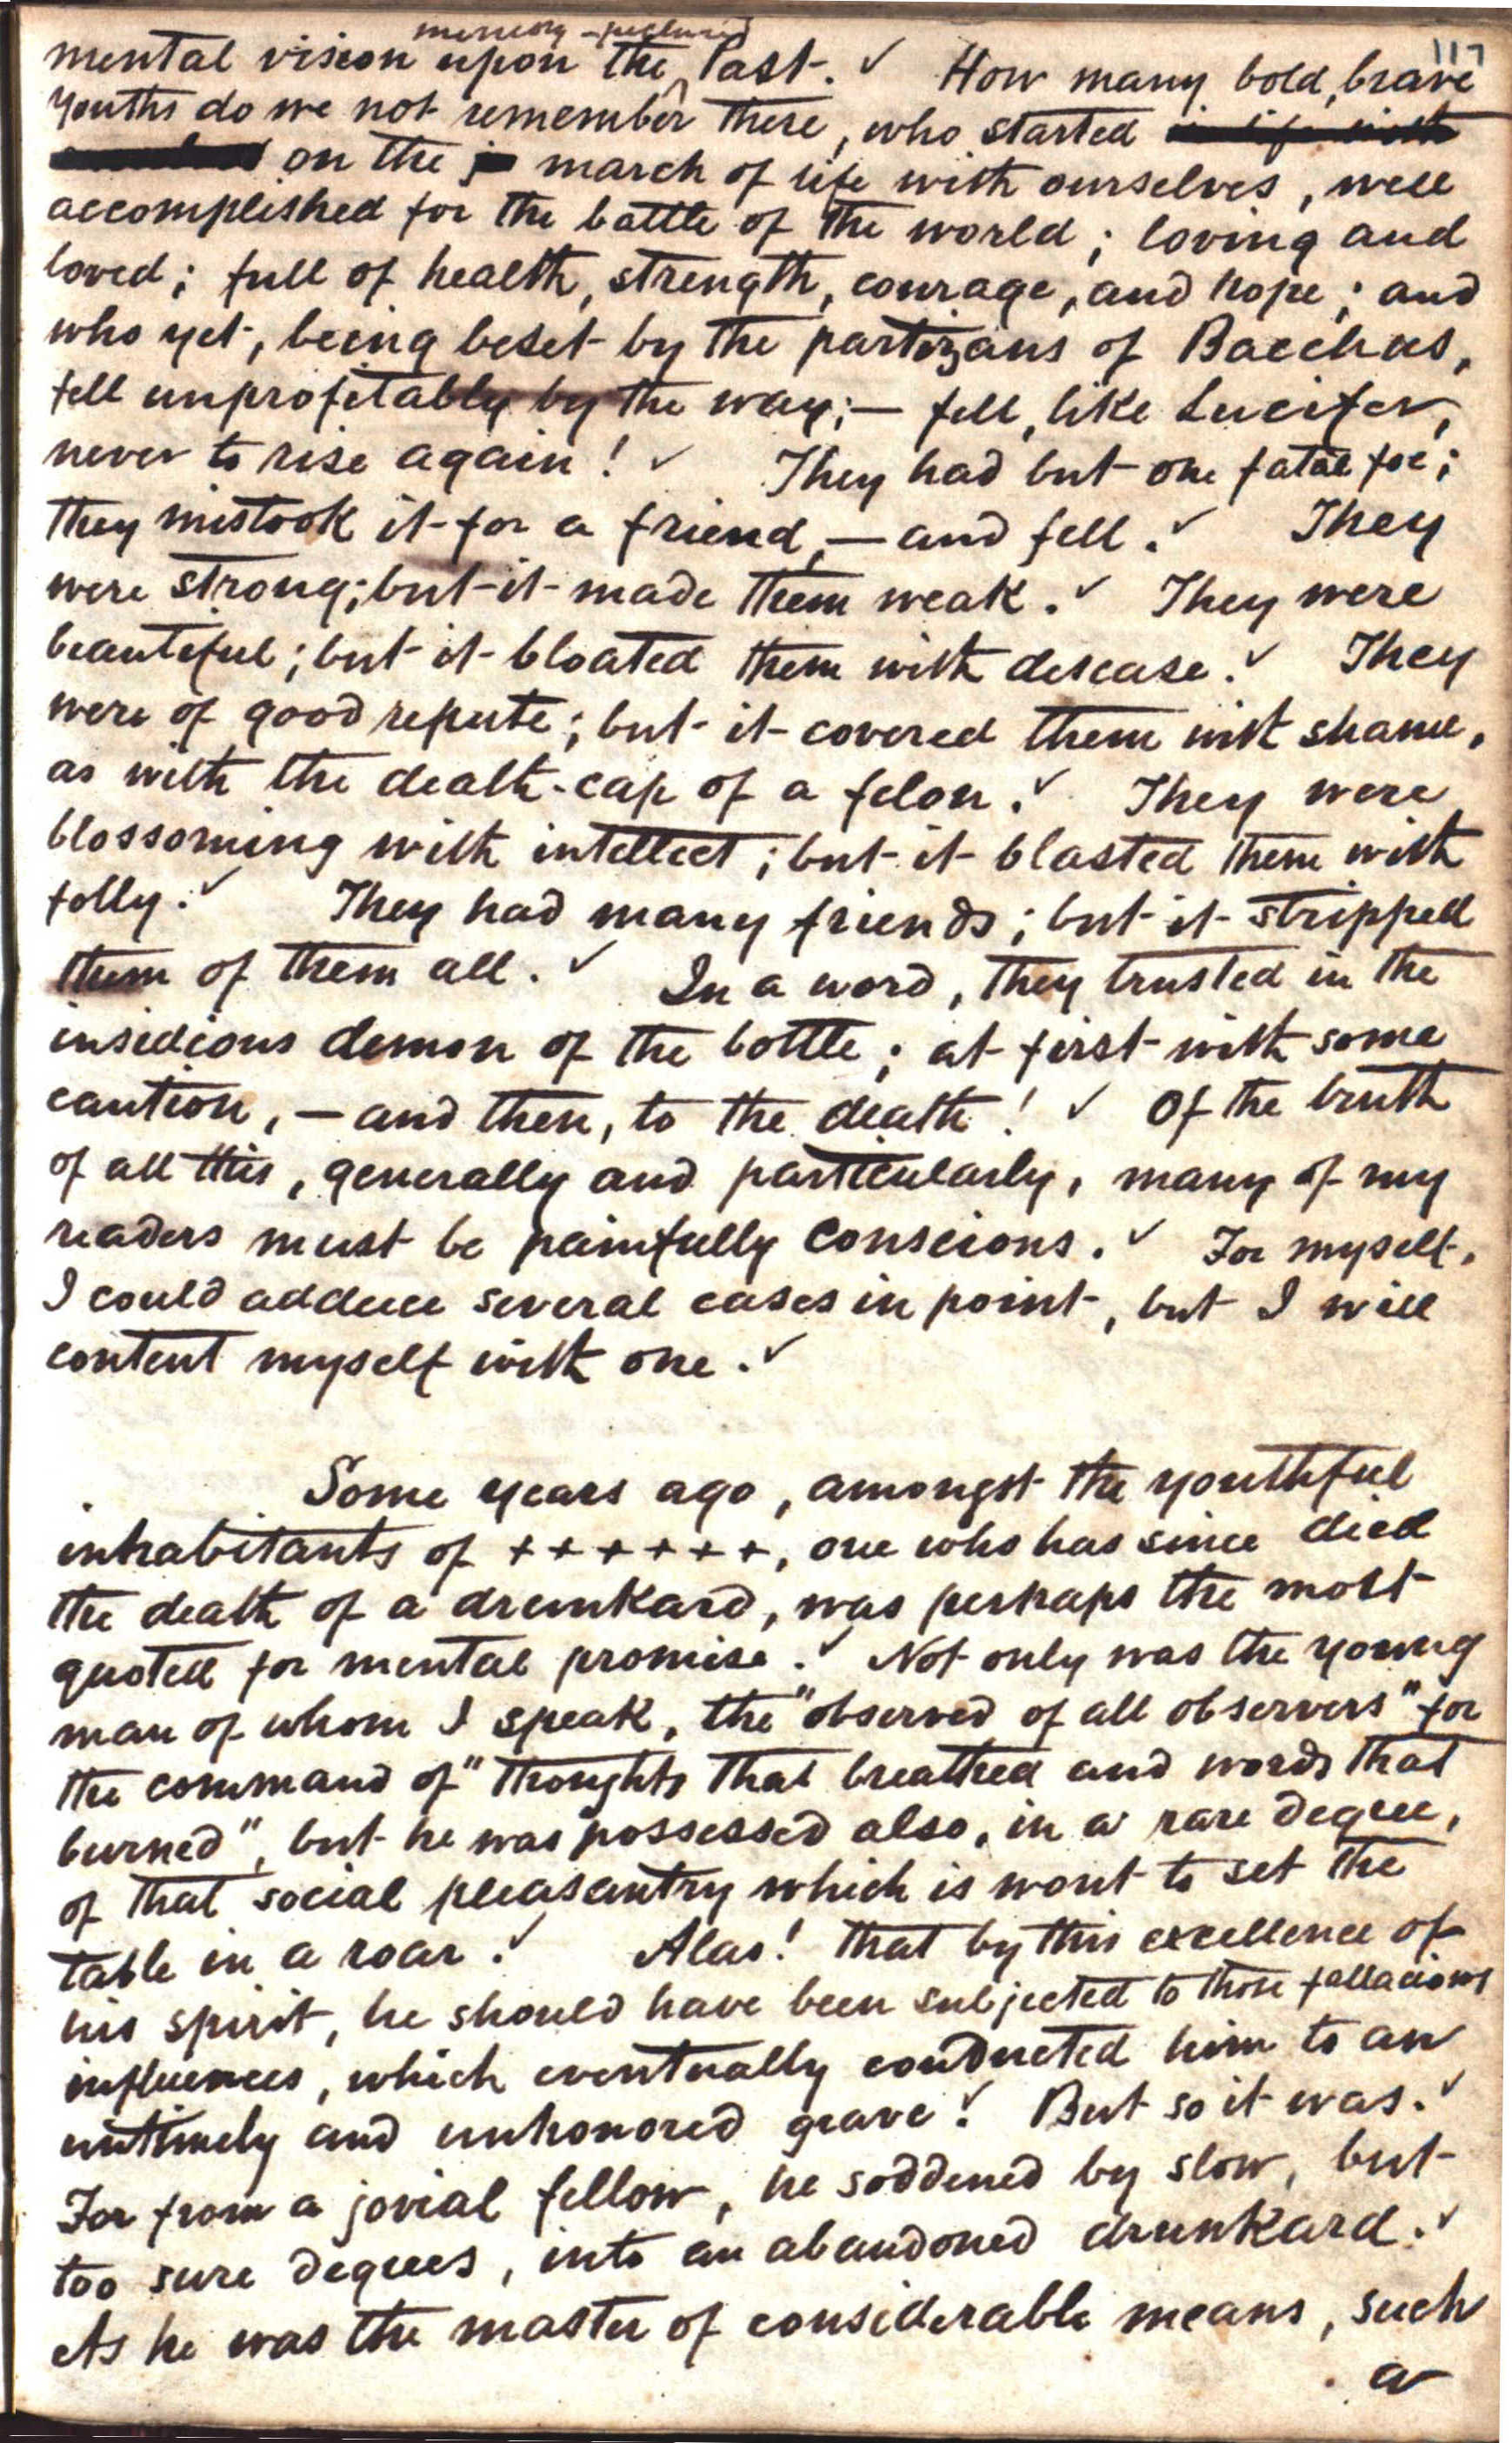 117
memory-pictured
mental vision upon the Past. ✓ How many bold, brave
youths do we not remember there, who started
on the march of life with ourselves, well
accomplished for the battle of the world; loving and
loved; full of health, strength, courage, and hope; and
who yet, being beset by the partizans of Bacchus,
fell unprofitably by the way; — fell, like Lucifer,
never to rise again! ✓ They had but one fatal foe;
they mistook it for a friend, — and fell. ✓ They
were strong; but it made them weak. ✓ They were
beautiful; but it bloated them with disease. ✓ They
were of good repute; but it covered them with shame,
as with the death-cap of a felon. ✓ They were
blossoming with intellect; but it blasted them with
folly. ✓ They had many friends; but it stripped
them of them all. ✓ In a word, they trusted in the
insidious demon of the bottle; at first with some
caution, — and then, to the death! ✓ Of the truth
of all this, generally and particularly, many of my
readers must be painfully conscious. ✓ For myself,
I could adduce several cases in point, but I will
content myself with one. ✓
Some years ago, amongst the youthful
inhabitants of ++++++, one who has since died
the death of a drunkard, was perhaps the most
quoted for mental promise. ✓ Not only was the young
man of whom I speak, the "observed of all observers" for
the command of "thoughts that breathed and words that
burned", but he was possessed also, in a rare degree,
of that social pleasantry which is wont to set the
table in a roar. ✓ Alas! that by this excellence of
his spirit, he should have been subjected to those fallacious
influences, which eventually conducted him to an
untimely and unhonored grave! ✓ But so it was. ✓
For from a jovial fellow, he soddened by slow, but
too sure degrees, into an abandoned drunkard. ✓
As he was the master of considerable means, such
a